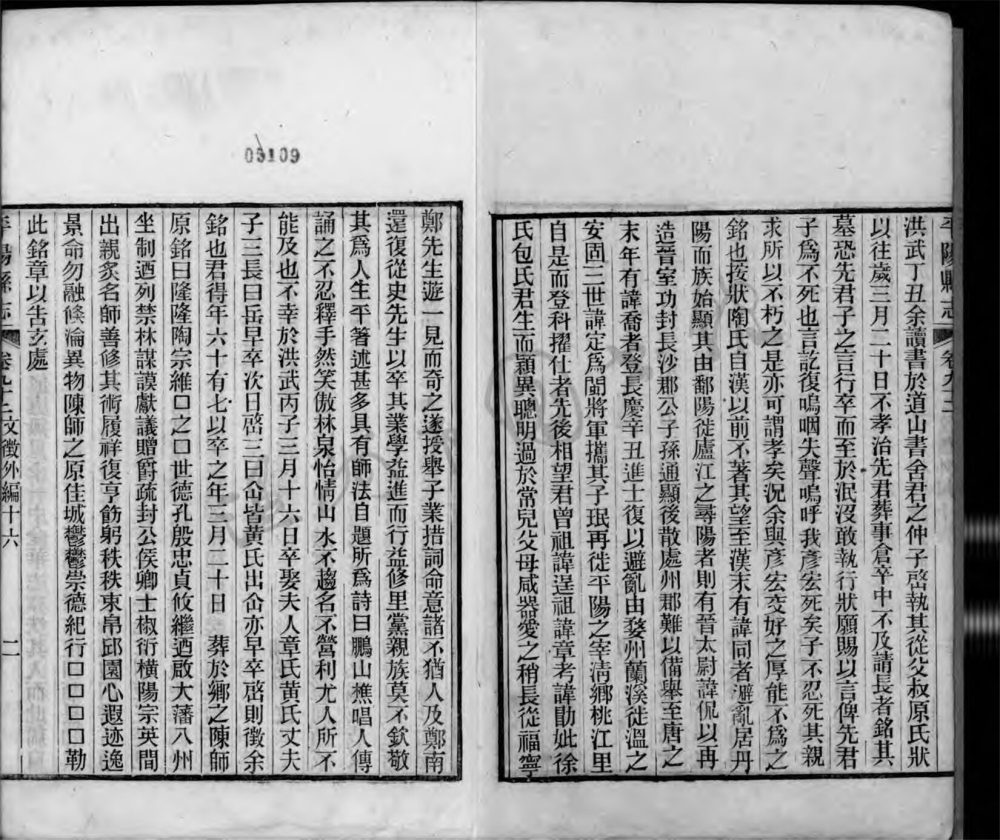 洪武丁丑余讀書於道山書舍君之仲子啓執其從父叔原氏狀
以往歲三月二十日不孝治先君葬事倉卒中不及請長者銘其
墓恐先君子之言行卒而至於泯沒敢執行狀願賜以言俾先君
子爲不死也言訖復嗚咽失聲嗚呼我彥宏死矣子不忍死其親
求所以不朽之是亦可謂孝矣況余與彥宏交好之厚能不爲之
銘也按狀陶氏自漢以前不著其望至漢末有諱同者避亂居丹
陽而族始顯其由鄱陽徙廬江之尋陽者則有晉太尉諱侃以再
造晉室功封長沙郡公子孫通顯後散處州郡難以備舉至唐之
末年有諱喬者登長慶辛丑進士復以避亂由婺州蘭溪徙溫之
安固三世諱定爲閩將軍攜其子珉再徙平陽之宰淸鄉桃江里
自是而登科擢仕者先後相望君曾祖諱逞祖諱章考諱勖妣徐
氏包氏君生而穎異聰明過於常兒父母咸器愛之稍長從福寧
平陽縣志 卷九十三
05109
鄭先生遊一見而奇之遂授舉子業措詞命意諸不猶人及鄭南
還復從史先生以卒其業學益進而行益修里黨親族莫不欽敬
其爲人生平著述甚多具有師法自題所爲詩曰鵬山樵唱人傳
誦之不忍釋手然笑傲林泉怡情山水不趨名不營利尤人所不
能及也不幸於洪武丙子三月十六日卒娶夫人章氏黃氏丈夫
子三長曰岳早卒次曰啓三曰㑫皆黃氏出㑫亦早卒啓則徵余
銘也君得年六十有七以卒之年三月二十日 葬於鄉之陳師
原銘曰隆隆陶宗維口之口世德孔殷忠貞攸繼迺啟大藩八州
坐制迺列禁林謀謨獻議贈爵疏封公侯卿士椒衍橫陽宗英間
出親炙名師善修其術履祥復亨飭躬秩秩東帛邱園心遐迹逸
景命勿融倐淪異物陳師之原佳城鬱鬱崇德紀行口口口口勒
此銘章以告玄處
平陽縣志 卷九十三 文徵外編十六 二